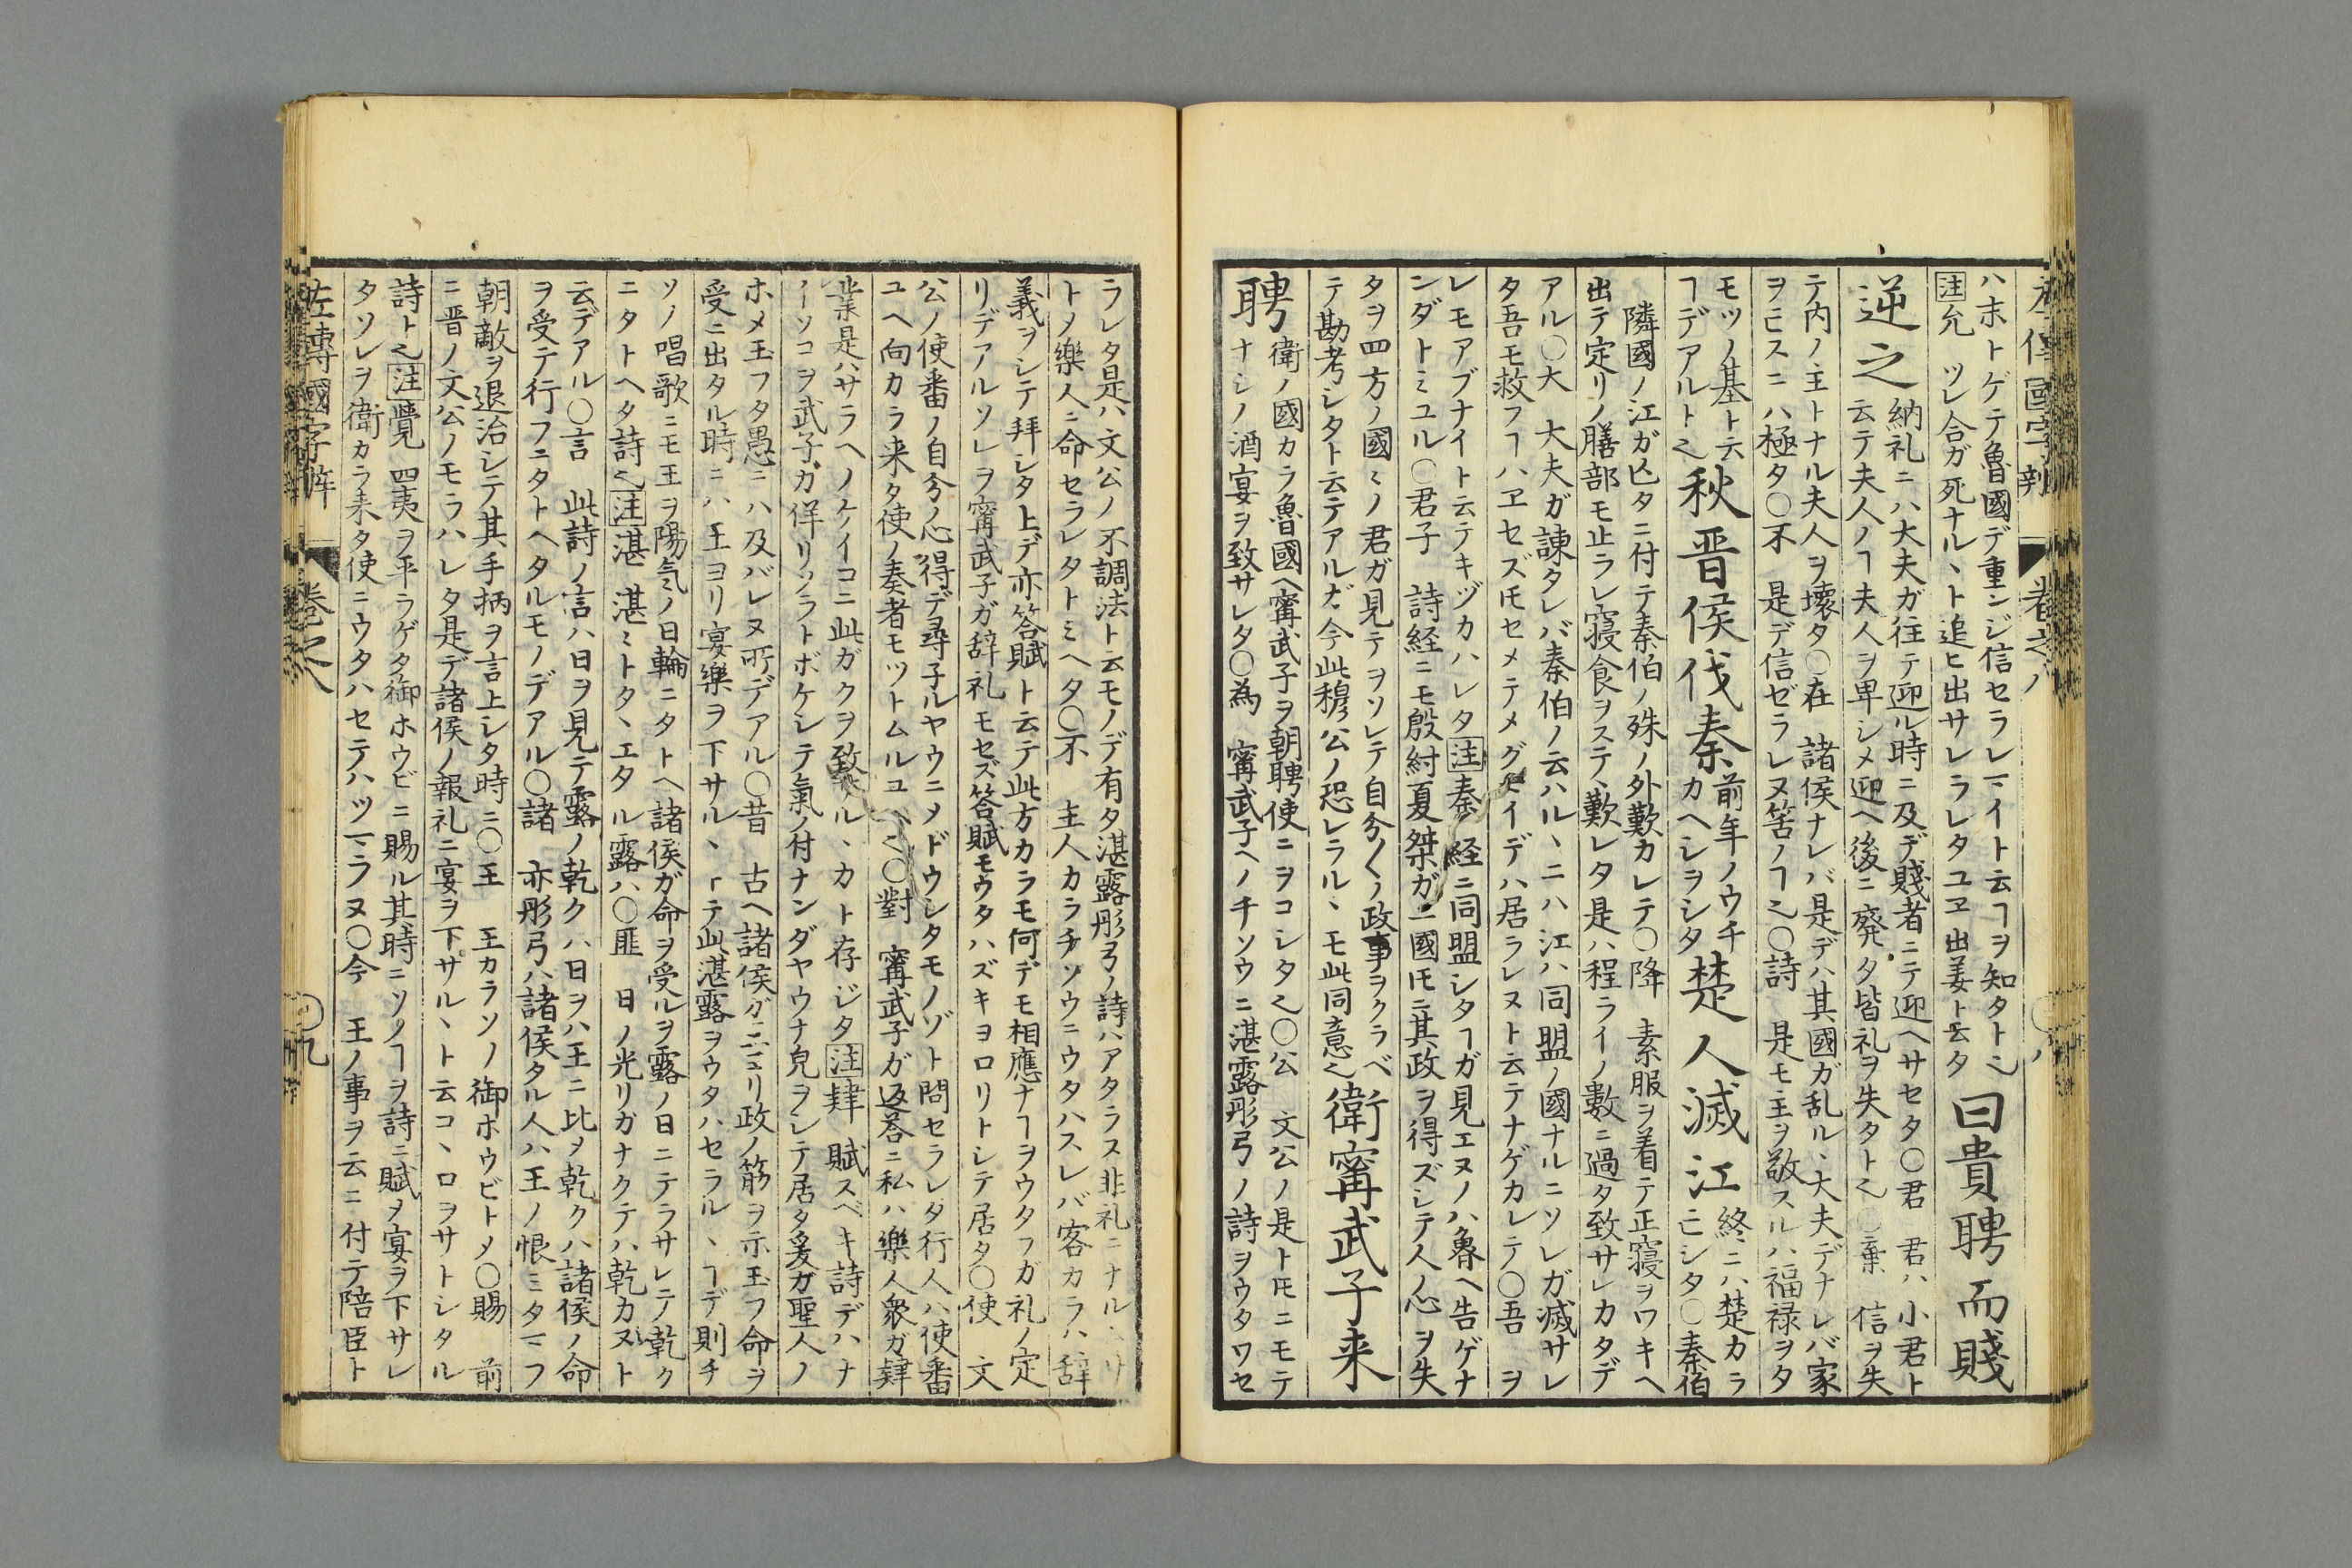 左傳國字辯 卷之八 八
ハ末トゲテ魯國デ重ンジ信セラレマイト云ヿヲ知タト𛄌
注允 ツレ合ガ死ナルヽト追ヒ出サレラレタユヱ出姜ト云タ
曰貴聘而賤
逆之
納礼ニハ大夫ガ往テ迎ル時ニ及デ賤者ニテ迎ヘサセタ〇君 君ハ小君ト
云テ夫人ノヿ夫人ヲ卑シメ迎ヘ後ニ廃タ皆礼ヲ失タト𛄌〇棄 信ヲ失
テ内ノ主トナル夫人ヲ壞タ〇在 諸侯ナレバ是デハ其國ガ乱ルヽ大夫デナレバ家
ヲ亡スニハ極タ〇不 是デ信ゼラレヌ筈ノヿ𛄌〇詩 是モ主ヲ敬スルハ福禄ヲタ
モツノ基ト云
ヿデアルト𛄌
秋晋侯伐秦
前年ノウチ
カヘシヲシタ
楚人滅江
終ニハ楚カラ
亡シタ〇秦伯
隣國ノ江ガ亾タニ付テ秦伯ノ殊ノ外歎カレテ〇降 素服ヲ着テ正寝ヲワキヘ
出テ定リノ膳部モ止ラレ寝食ヲステヽ歎レタ是ハ程ライノ數ニ過タ致サレカタデ
アル〇大 大夫ガ諌タレバ秦伯ノ云ハルヽニハ江ハ同盟ノ國ナルニソレガ滅サレ
タ吾モ救フヿハヱセズ𪜈セメテメグモイデハ居ラレヌト云テナゲカレテ〇吾 ヲ
レモアブナイト云テキヅカハレタ注秦 経ニ同盟シタヿガ見エヌノハ魯ヘ告ゲナ
ンダトミユル〇君子 詩経ニモ殷紂夏桀ガ二國𪜈ニ其政ヲ得ズシテ人ノ心ヲ失
タヲ四方ノ國ミノ君ガ見テヲソレテ自分〱ノ政事ヲクラベ
テ勘考シタト云テアルガ今此穆公ノ恐レラルヽモ此同意𛄌
衛甯武子来
聘
衛ノ國カラ魯國ヘ甯武子ヲ朝聘使ニヲコシタ𛄌〇公 文公ノ是ト𪜈ニモテ
ナシノ酒宴ヲ致サレタ〇為 甯武子ヘノチソウニ湛露彤弓ノ詩ヲウタワセ
ラレタ是ハ文公ノ不調法ト云モノデ有タ湛露彤弓ノ詩ハアタラス非礼ニナル
トノ樂人ニ命セラレタトミヘタ〇不 主人カラチソウニウタハスレバ客カラハ辞
義ヲシテ拜シタ上デ亦答賦ト云テ此方カラモ何デモ相應ナヿヲウタフガ礼ノ定
リデアルソレヲ甯武子ガ辞礼モセズ答賦モウタハズキヨロリトシテ居タ〇使 文
公ノ使番ノ自分ノ心得デ尋子ルヤウニメドウシタモノゾト問セラレタ行人ハ使番
ユヘ向カラ来タ使ノ奏者モツトムルユヘ𛄌〇對 甯武子ガ返荅ニ私ハ樂人衆ガ肄
業是ハサラヘノケイコニ此ガクヲ致ルヽカト存ジタ注肄 賦スベキ詩デハナ
イソコヲ武子ガ佯リソラトボケシテ氣ノ付ナンダヤウナ皃ヲレテ居タ爰ガ聖人ノ
ホメ玉フタ愚ニハ及バレヌ所デアル〇昔 古ヘ諸侯ガ二ニヨリ政ノ筋ヲ示玉フ命ヲ
受ニ出タル時ニハ王ヨリ宴樂ヲ下サルヽヿテ此湛露ヲウタハセラルヽヿデ則チ
ソノ唱歌ニモ王ヲ陽気ノ日輪ニタトヘ諸侯ガ命ヲ受ルヲ露ノ日ニテラサレニノ乾ク
ニタトヘタ詩𛄌注湛 湛ミトタヽエタル露ハ〇匪 日ノ光リガナクテハ乾カヌト
云デアル〇言 此詩ノ言ハ日ヲ見テ露ノ乾クハ日ヲハ王ニ比ヲ乾クハ諸侯ノ命
ヲ受テ行フニタトヘタルモノデアル〇諸 亦彤弓ハ諸侯タル人ハ王ノ恨ミタマフ
朝敵ヲ退治シテ其手柄ヲ言上レタ時ニ〇王 王カラソノ御ホウビトメ〇賜 前
ニ晋ノ文公ノモラハレタ是デ諸侯ノ報礼ニ宴ヲ下サルヽト云コヽロヲサトシタル
詩ト𛄌注覺 四夷ヲ平ラゲタ御ホウビニ賜ル其時ニソノヿヲ詩ニ賦メ宴ヲ下サレ
タソレヲ衛カラ来タ使ニウタハセテハツマラヌ〇今 王ノ事ヲ云ニ付テ陪臣ト
左傳國字辯 卷之八 九